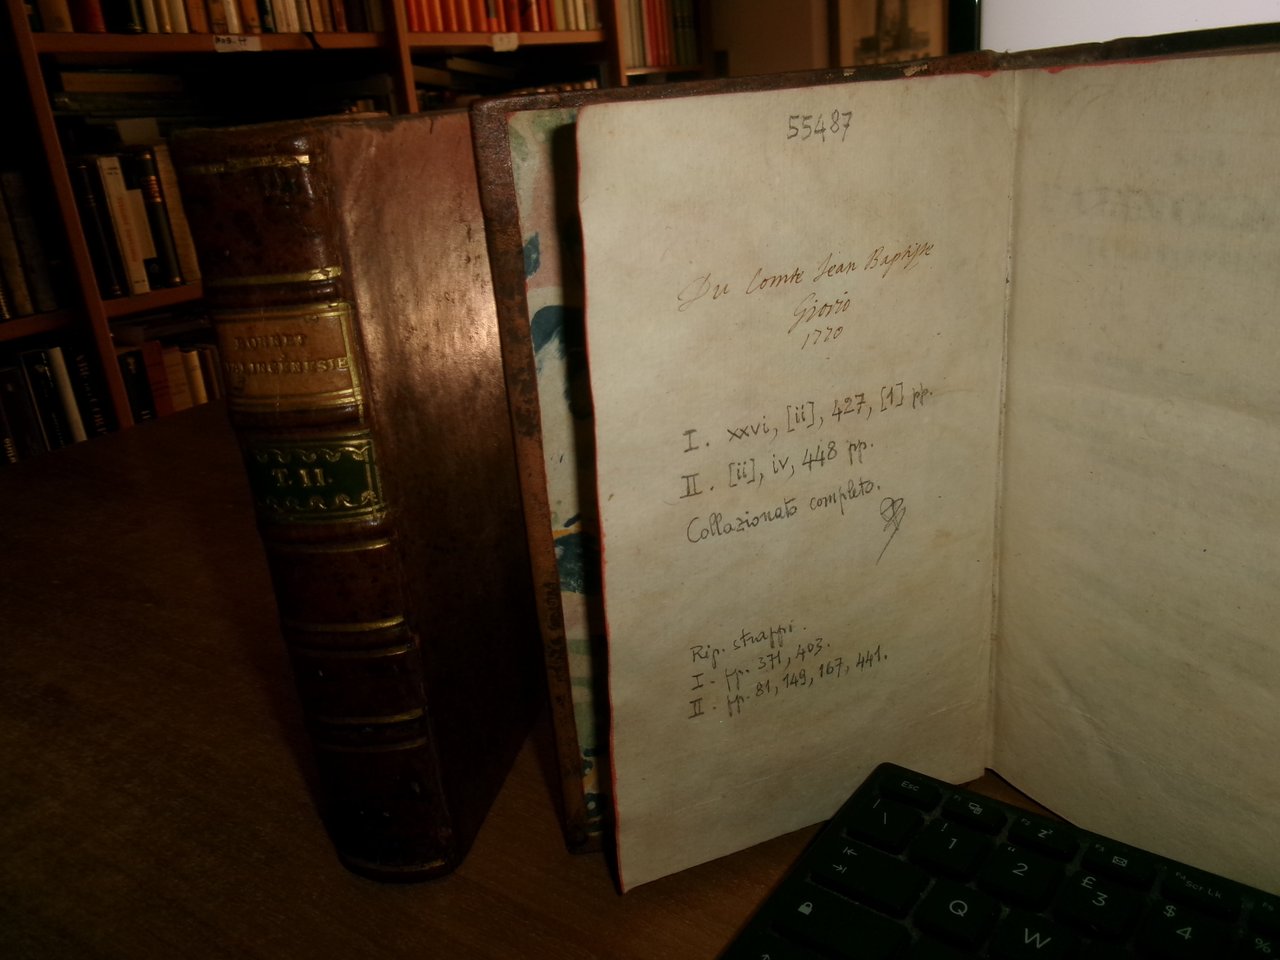 BONNET
PALINGÉNESIE
T. II.
55487
Du Comte Jean Baptiste
Giovio
1770
I. xxvi, [ii], 427, [1] pp.
II. [ii], iv, 448 pp.
Collazionato completo.
Rip. strappi.
I - pp. 371, 403.
II. pp. 81, 149, 167, 441.
Esc
\
!
1
"
2
£
3
$
4
%
Q
W
Scr Lk